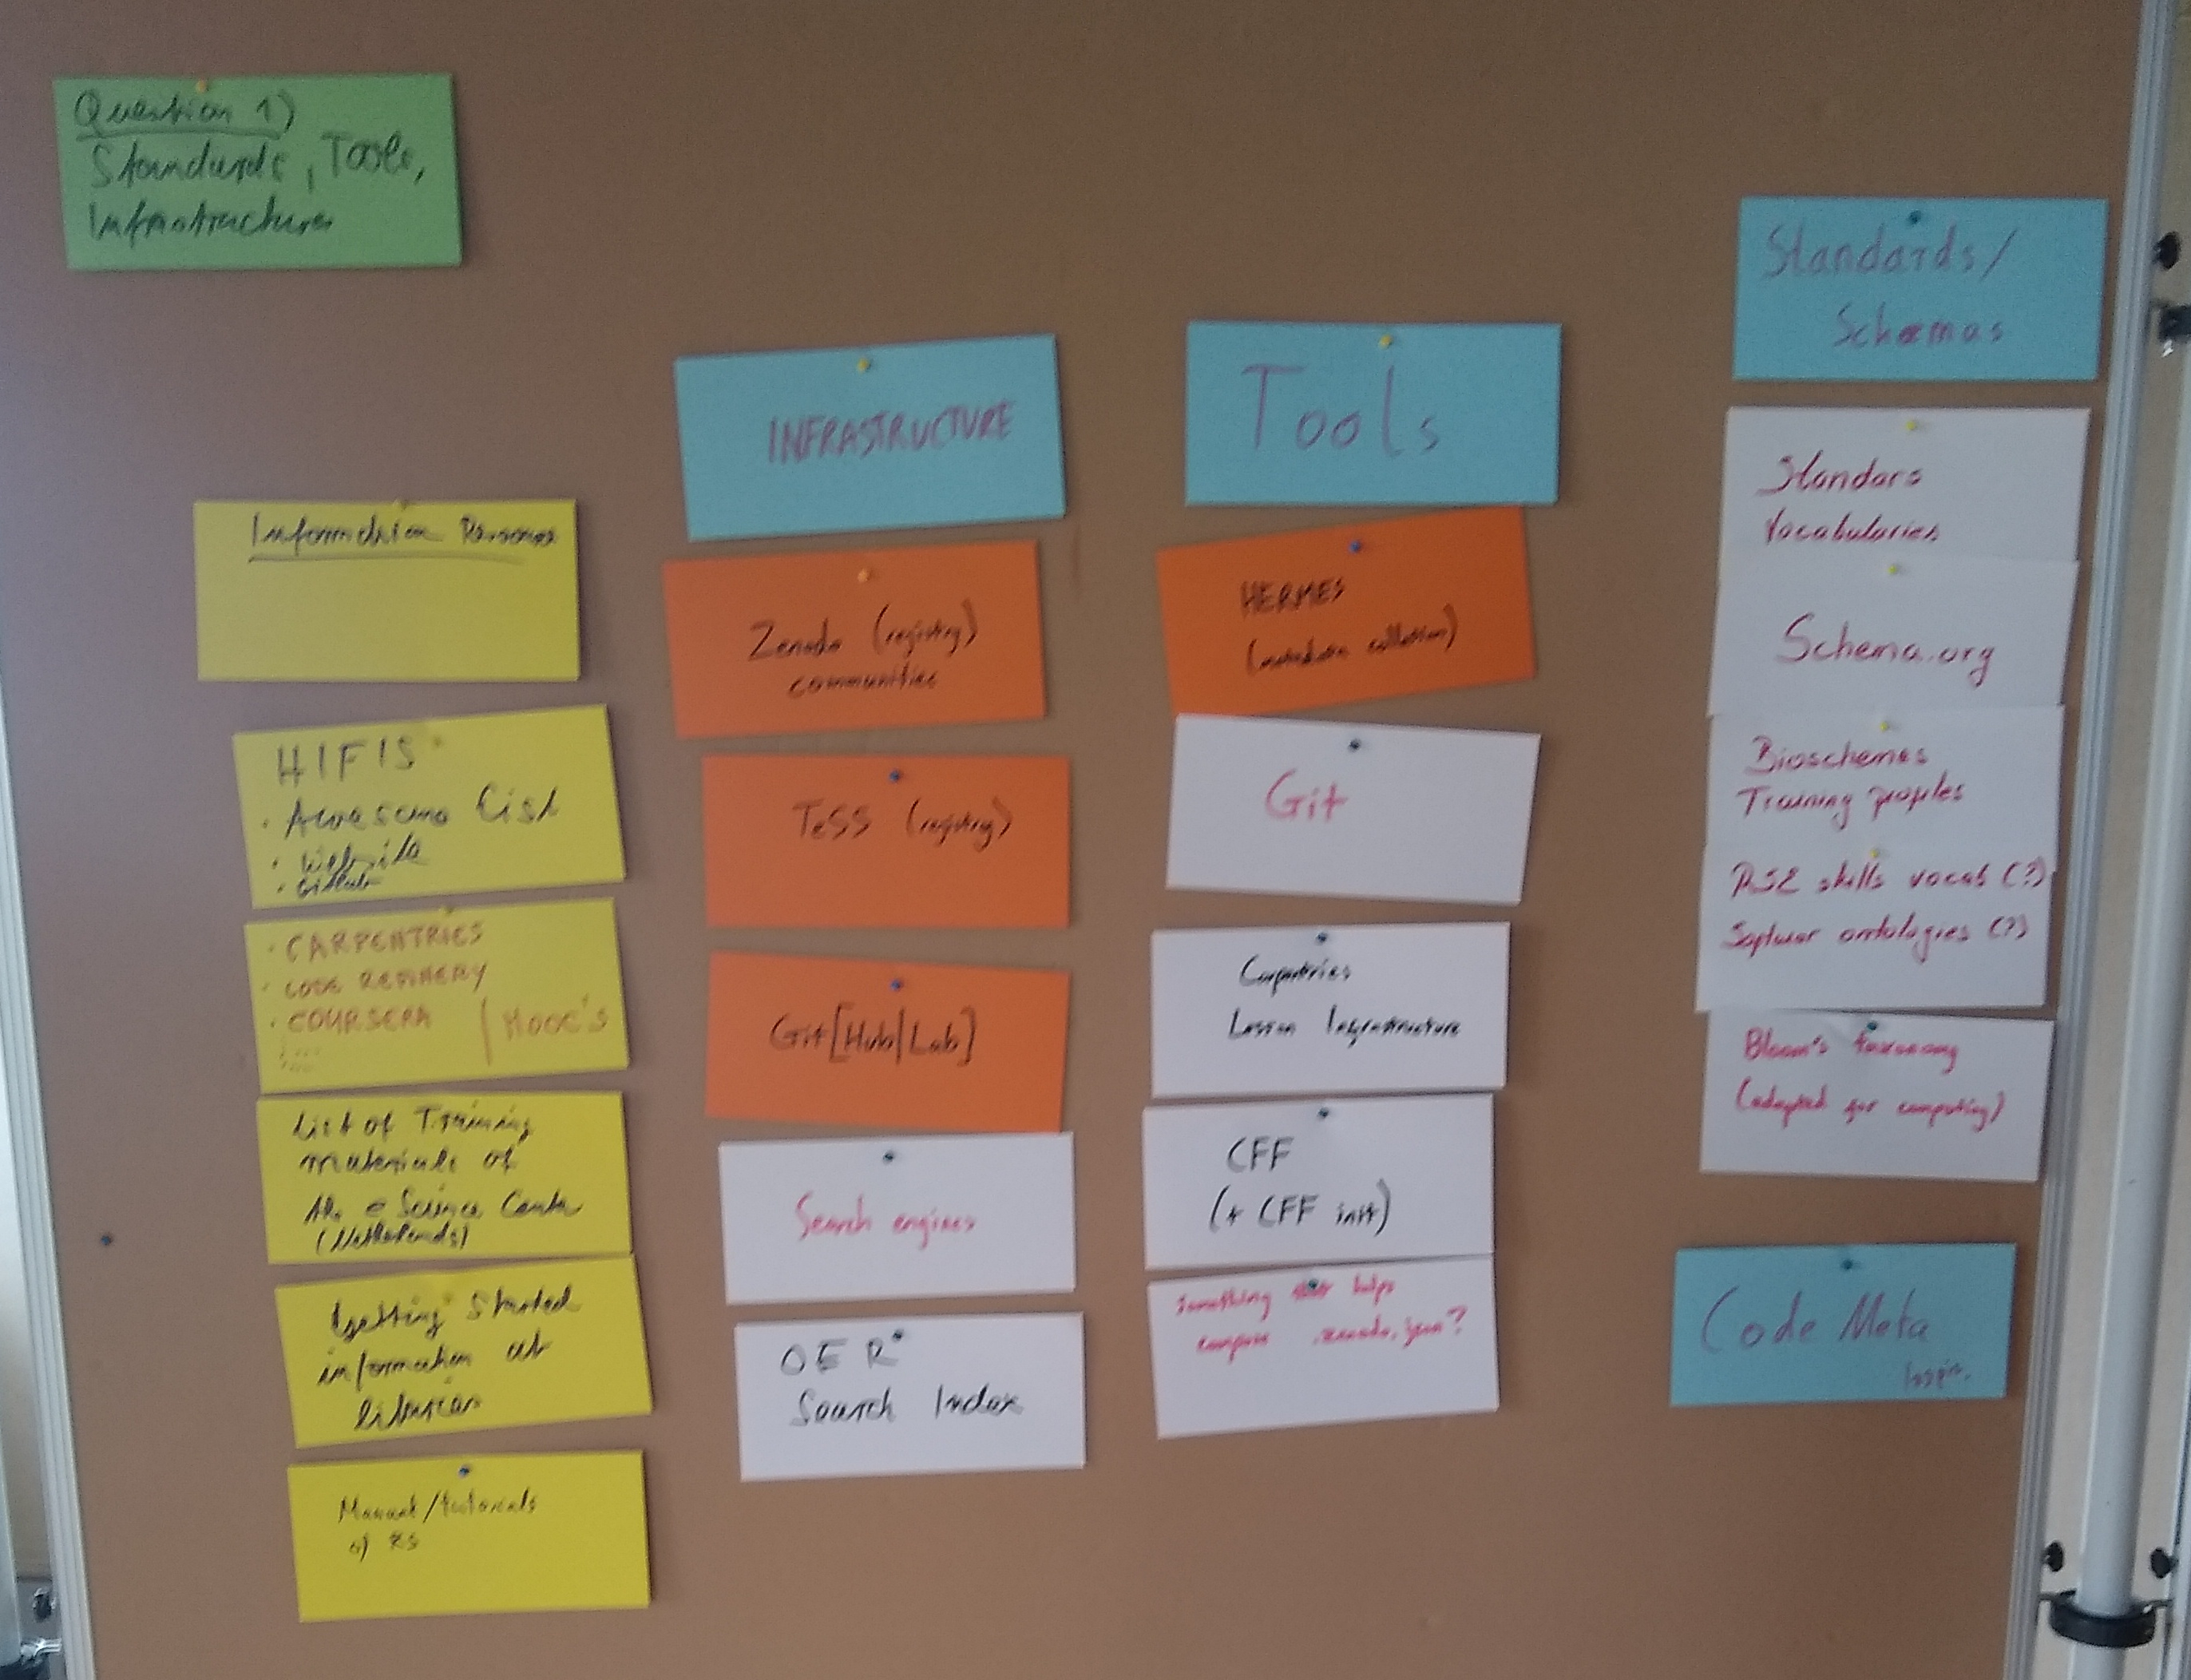 Question 1)
Standards, Tools,
Infrastructure
Information Resources
HIFIS
· Awesome List
· Website
· GitHub
· CARPENTRIES
· CODE REFINERY
· COURSERA | MOOC's
:...
List of Training
materials of
the eScience Center
(Netherlands)
Getting Started
information at
libraries
Manual/tutorials
of RS
INFRASTRUCTURE
Zenodo (registry)
communities
TeSS (registry)
Git[Hub|Lab]
Search engines
OER
Search Index
Tools
HERMES
(metadata collation)
Git
Carpentries
Lesson Infrastructure
CFF
(+ CFF init)
Something that helps
compose .zenodo.json?
Standards/
Schemas
Standars
Vocabularies
Schema.org
Bioschemes
Training profiles
RSE skills vocab (?)
Software ontologies (?)
Bloom's taxonomy
(adapted for computing)
Code Meta